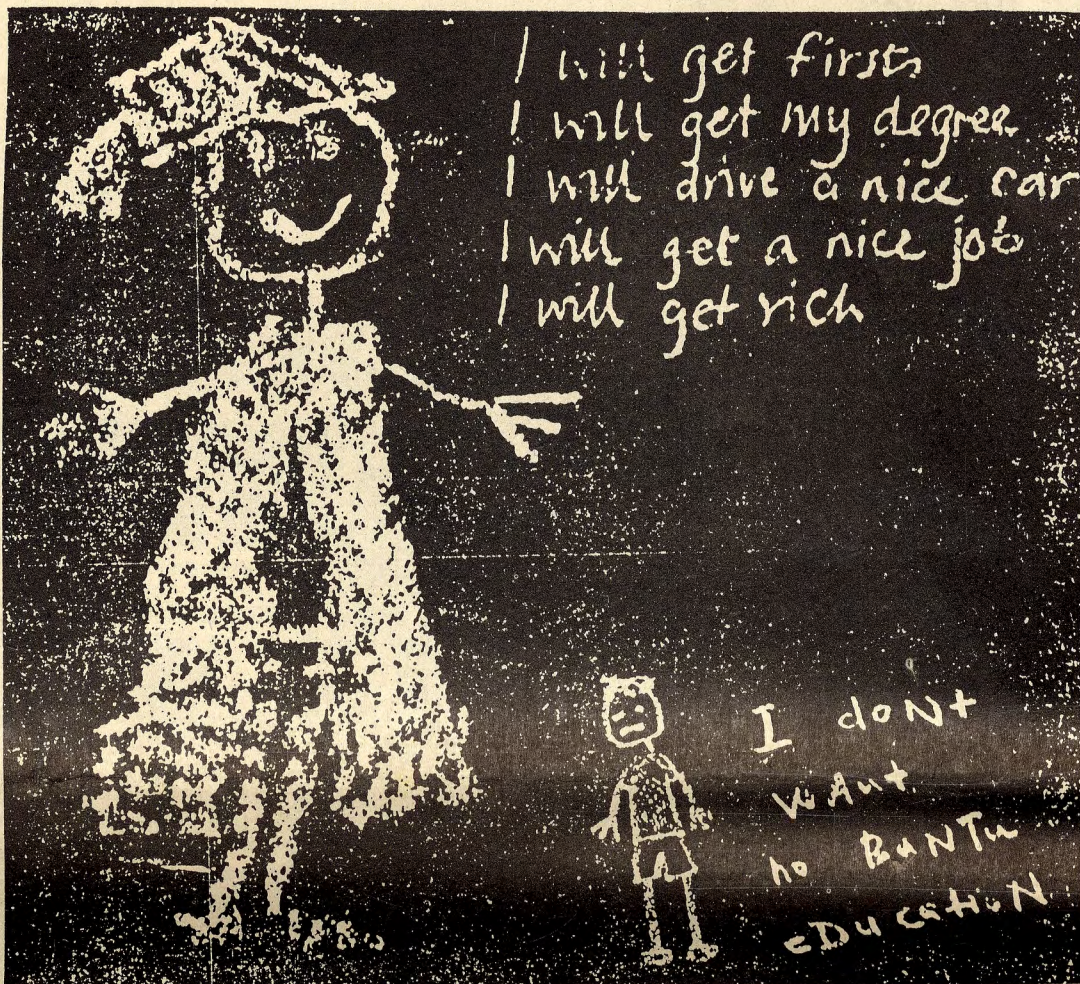 I will get firsts
I will get my degree
I will drive a nice car
I will get a nice job
I will get rich
I doNt
WAnt
no BaNTu
eDucatioN